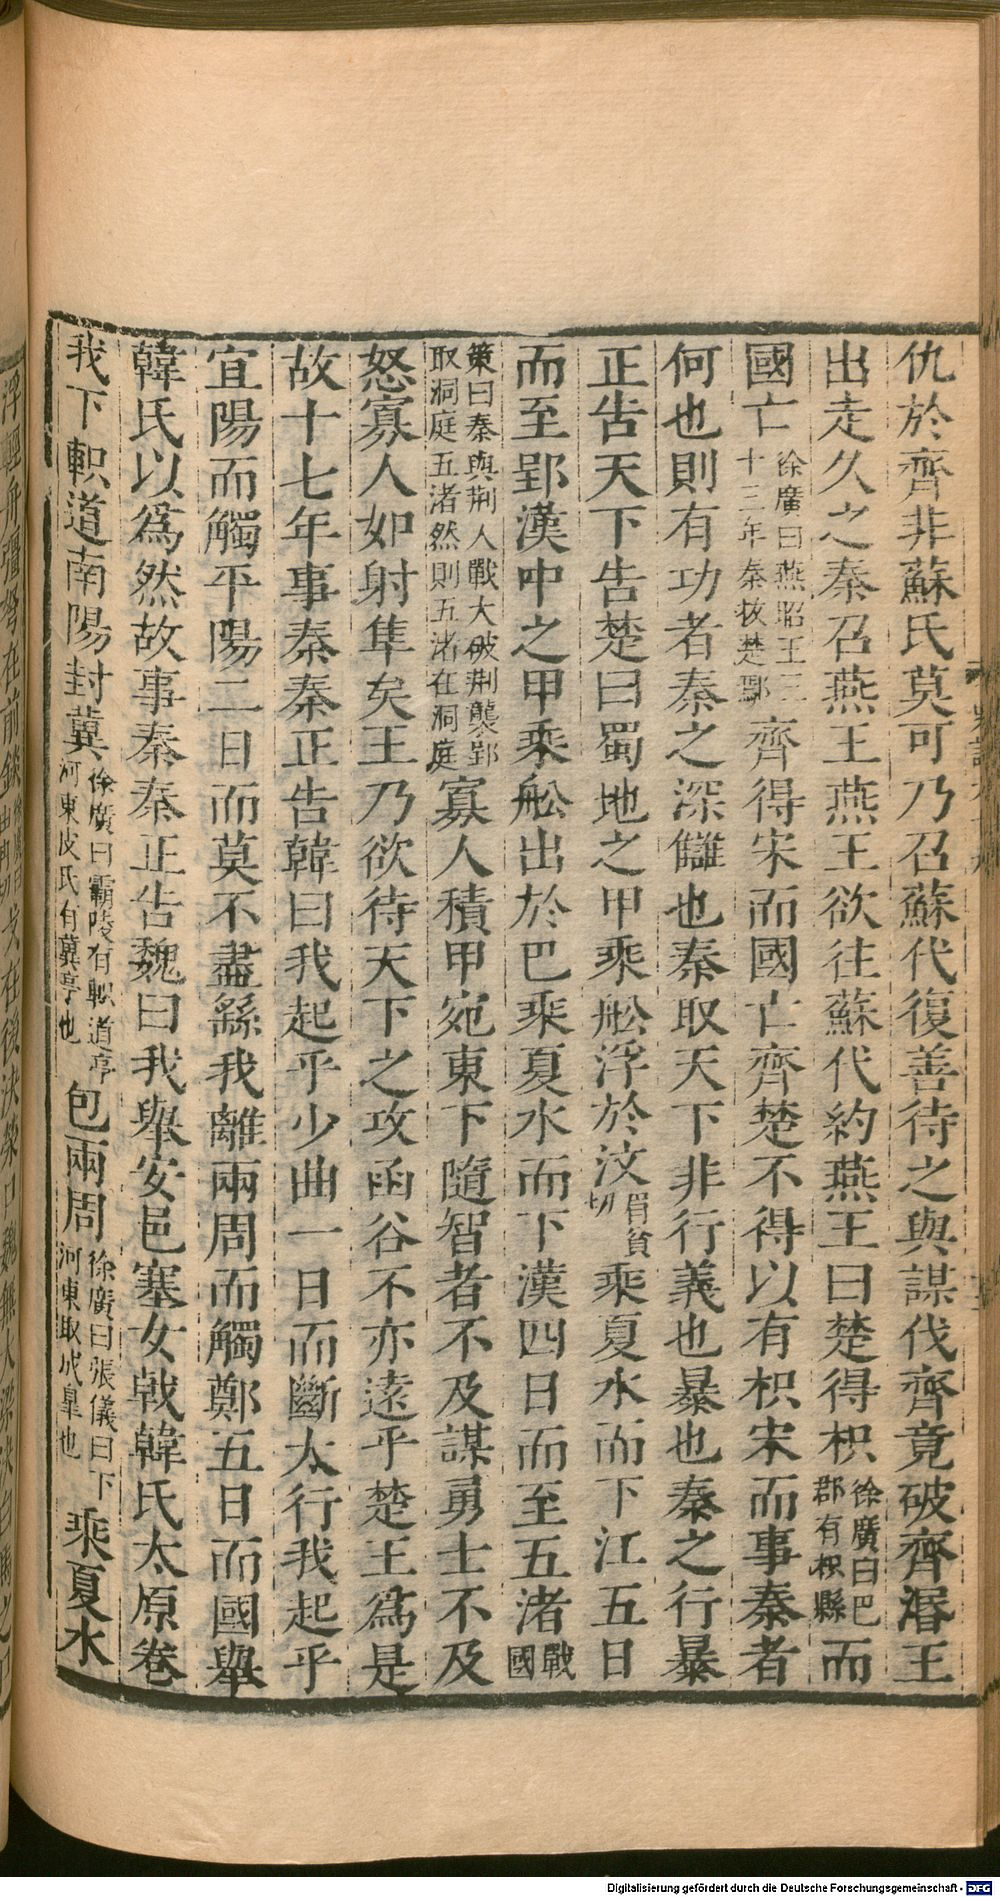 仇於齊非蘇氏莫可乃召蘇代復善待之與謀伐齊竟破齊湣王
出走久之秦召燕王燕王欲往蘇代約燕王曰楚得枳徐廣曰巴郡有枳縣而
國亡徐廣曰燕昭王三十三年秦拔楚鄢齊得宋而國亡齊楚不得以有枳宋而事秦者
何也則有功者秦之深讎也秦取天下非行義也暴也秦之行暴
正告天下告楚曰蜀地之甲乘舩浮於汶眉貧切乘夏水而下江五日
而至郢漢中之甲乘舩出於巴乘夏水而下漢四日而至五渚戰國
策曰秦與荆人戰大破荆襲郢取洞庭五渚然則五渚在洞庭寡人積甲宛東下隨智者不及謀勇士不及
怒寡人如射隼矣王乃欲待天下之攻函谷不亦遠乎楚王爲是
故十七年事秦秦正告韓曰我起乎少曲一日而斷太行我起乎
宜陽而觸平陽二日而莫不盡繇我離兩周而觸鄭五日而國舉
韓氏以爲然故事秦秦正告魏曰我舉安邑塞女戟韓氏太原卷
我下軹道南陽封冀徐廣曰霸陵有軹道亭河東皮氏有冀亭也包兩周徐廣曰張儀曰下河東取成皐也乘夏水
Digitalisierung gefördert durch die Deutsche Forschungsgemeinschaft - DFG